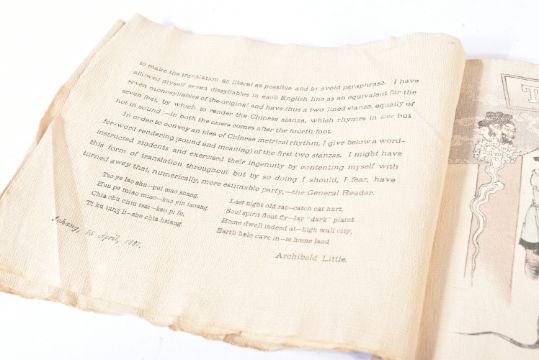 to make the translation as literal as possible and to avoid paraphrase. I have
allowed myself seven dissyllables in each English line as an equivalent for the
seven monosyllables of the original and have thus a two lined stanza, equally of
seven feet, by which to render the Chinese stanza, which rhymes in fact but
not in sound—in both the cæsura comes after the fourth foot.
In order to convey an idea of Chinese metrical rhythm, I give below a word-
for-word rendering (sound and meaning) of the first two stanzas. I might have
instructed students and exercised their ingenuity by contenting myself with
this form of translation throughout but by so doing I should, I fear, have
turned away that, numerically, more estimable party,—the General Reader.
Tso ye lao shu—pei mao shang.
Hun po miao miao—kuo yin
Chia chu chiu tsai—kao pi li,
Ti ku tung li—she chia hsiang
Last night old rat—catch cat hurt,
Soul spirit float fly—lay "dark" planet
Home dwell indeed at—high wall city,
Earth hole cave in—is home land
Ichang, 15 April,
Archibald Little.
T